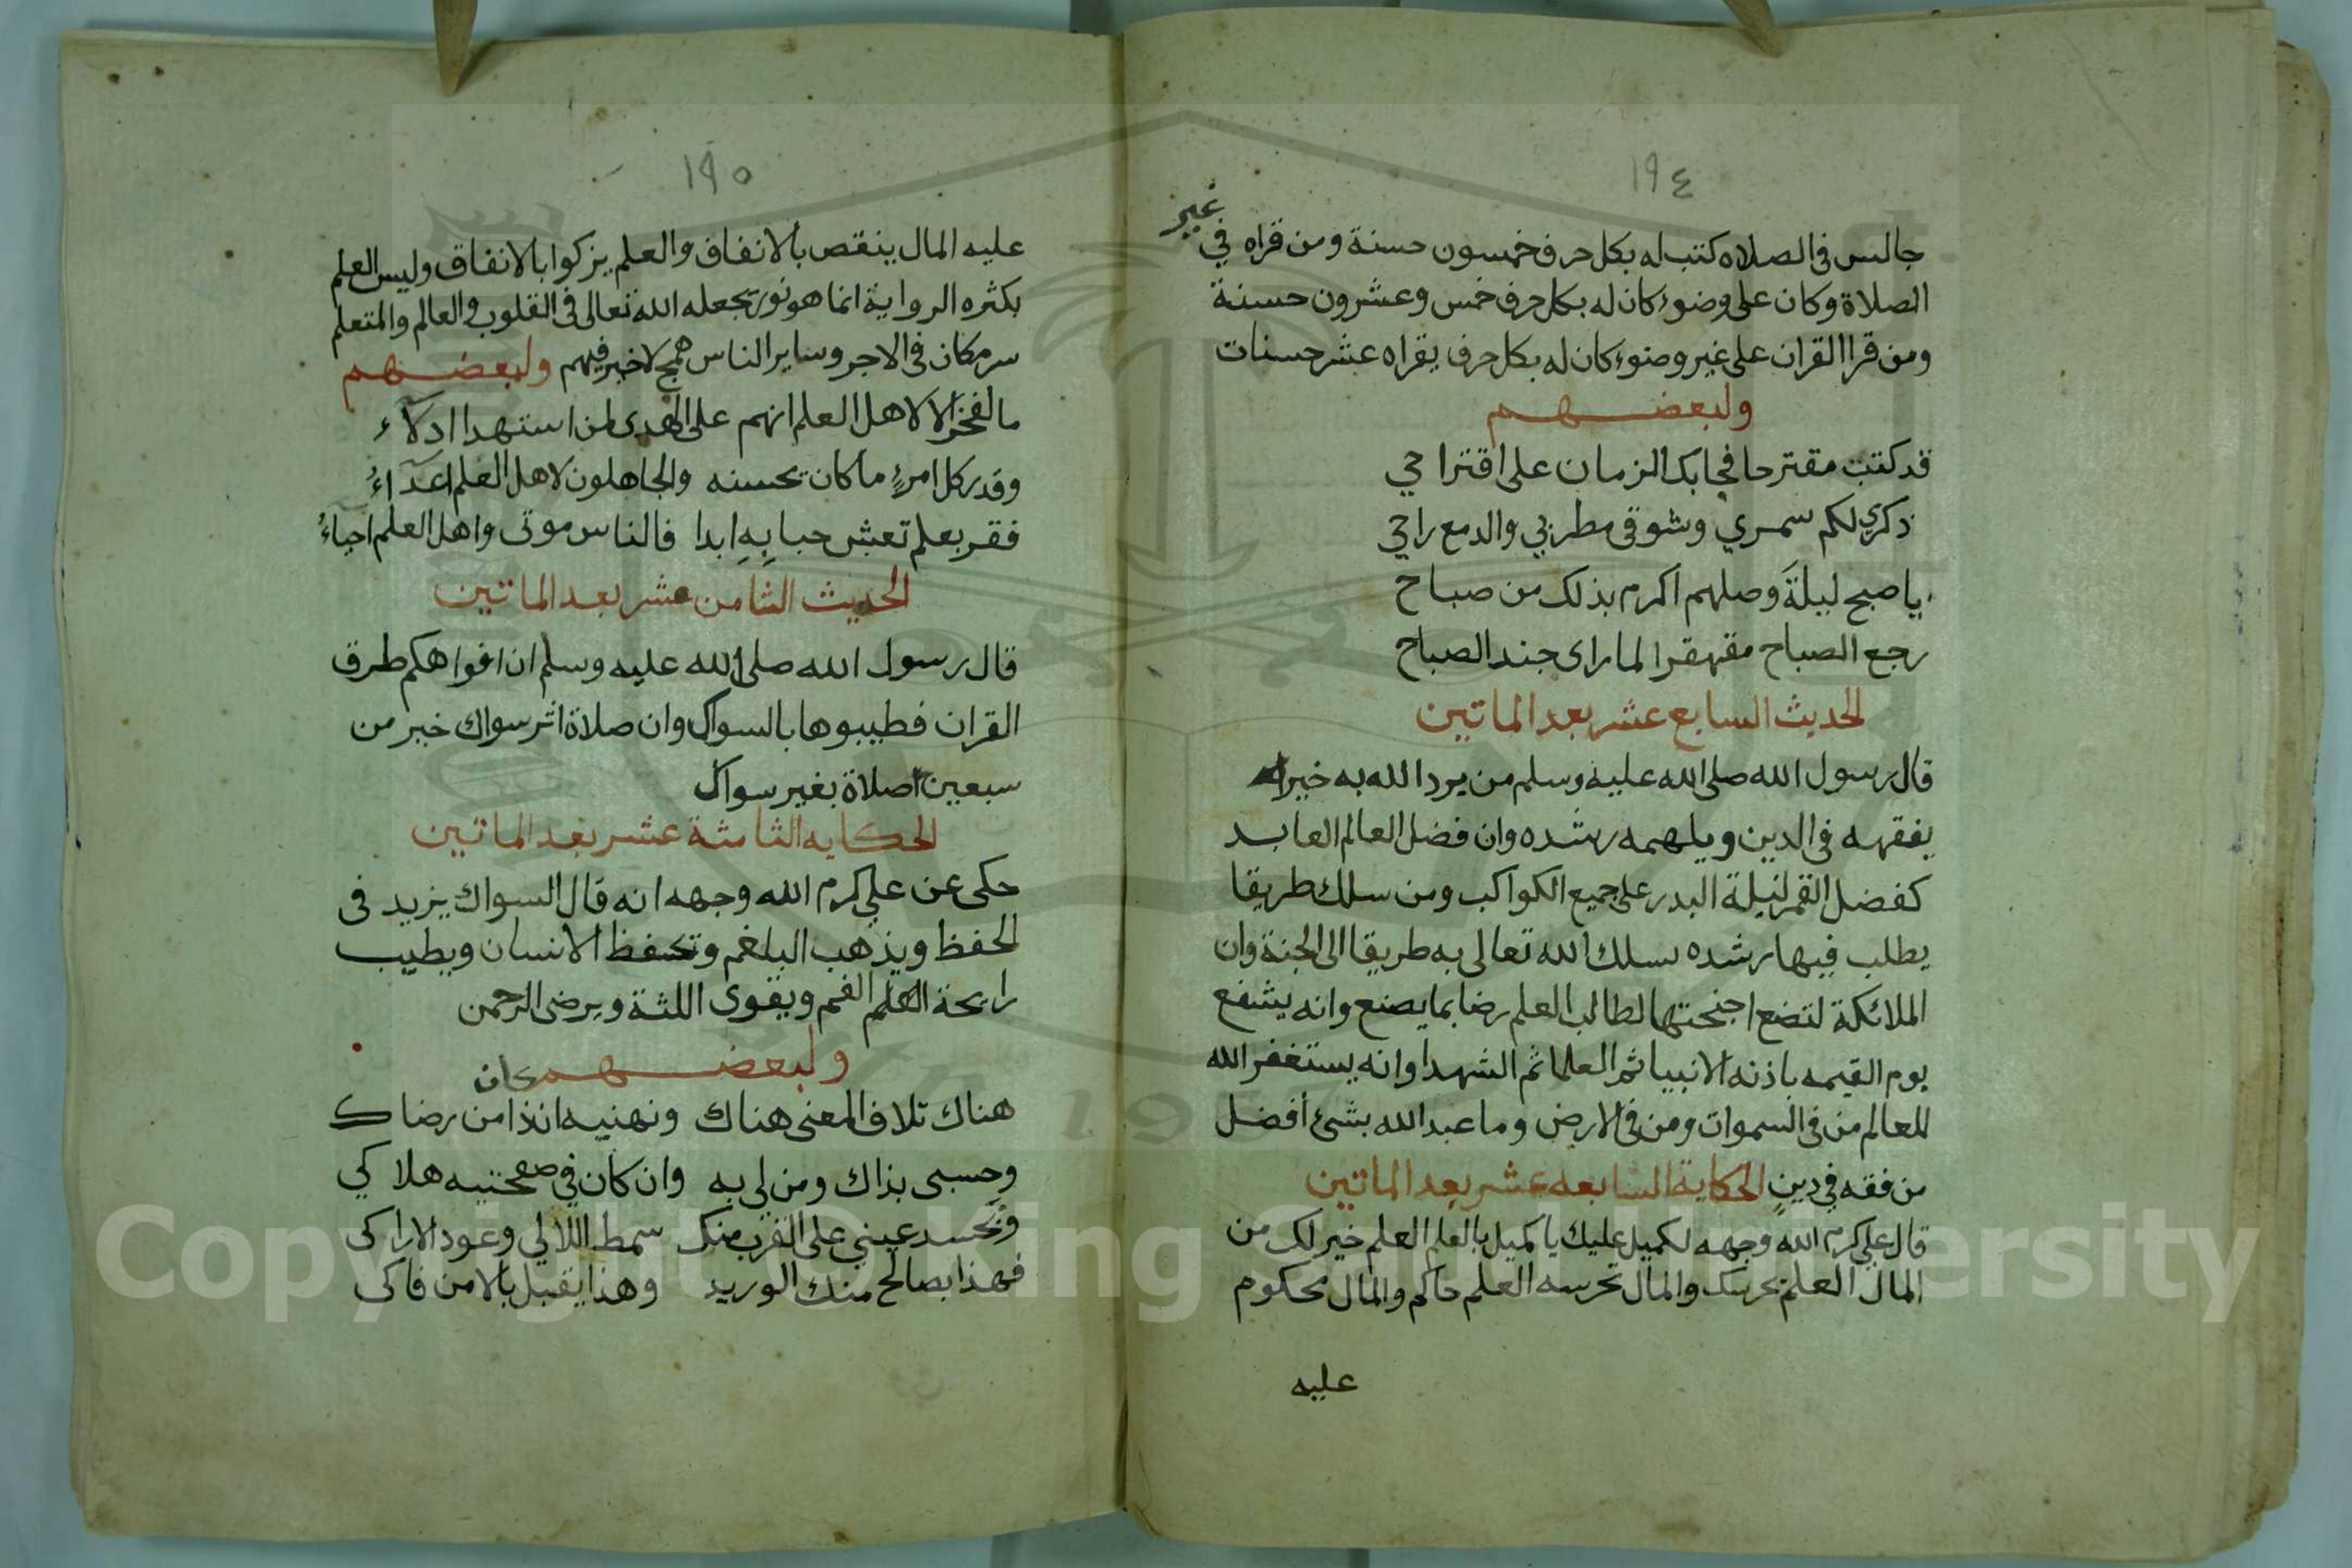 ١٩٤
جالس في الصلاه كتب له بكل حرف خمسون حسنة ومن قراه في غير
الصلاة وكان على وضوء كان له بكل حرف خمس وعشرون حسنة
ومن قرا القران على غير وضوء كان له بكل حرف يقراه عشر حسنات
ولبعضهم
قد كتبت مقترحا فجابك الزمان على اقتراحي
ذكري لكم سمري وشوقى مطربي والدمع راحي
يا صبح ليلة وصلهم اكرم بذلك من صباح
رجع الصباح مقهقرا لما راى جند الصباح
الحديث السابع عشر بعد الماتين
قال رسول الله صلى الله عليه وسلم من يرد الله به خيرا
يفقهه فى الدين ويلهمه رشده وان فضل العالم العابد
كفضل القمر ليلة البدر على جميع الكواكب ومن سلك طريقا
يطلب فيها رشده سلك الله تعالى به طريقا الى الجنة وان
الملائكة لتضع اجنحتها لطالب العلم رضا بما يصنع وانه يشفع
يوم القيمه باذنه الانبيا ثم العلما ثم الشهدا وانه يستغفر الله
للعالم من فى السموات ومن فى الارض وما عبد الله بشئ افضل
من فقه في دين الحكاية السابعه عشر بعد الماتين
قال علي كرم الله وجهه لكميل عليك يا كميل بالعلم العلم خير لك من
المال العلم يحرسك والمال تحرسه العلم حاكم والمال محكوم
عليه
١٩٥
عليه المال ينقص بالانفاق والعلم يزكوا بالانفاق وليس العلم
بكثره الرواية انما هو نور يجعله الله تعالى فى القلوب والعالم والمتعلم
سر مكان فى الاجر وساير الناس همج لاخير فيهم ولبعضهم
ما لفخر الا لاهل العلم انهم على الهدى لمن استهدا ادلاء
وقدر كل امرئ ما كان يحسنه والجاهلون لاهل العلم اعداء
فقر بعلم تعش حيا به ابدا فالناس موتى واهل العلم احياء
الحديث الثامن عشر بعد الماتين
قال رسول الله صلى الله عليه وسلم ان افواهكم طرق
القران فطيبوها بالسواك وان صلاة اثر سواك خير من
سبعين صلاة بغير سواك
الحكايه الثامنة عشر بعد الماتين
حكى عن علي كرم الله وجهه انه قال السواك يزيد فى
الحفظ ويذهب البلغم وتحفظ الانسان ويطيب
رايحة الفم ويقوى اللثة ويرضى الرحمن
ولبعضهم
كان
هناك تلاف المعنى هناك ونهنيه انذا من رضاك
وحسبى بذاك ومن لي به وان كان في صفحتيه هلاكي
وتحسد عيني على القرب منك سمط اللالي وعود الاراكى
فهذا يصالح منك الوريد وهذا يقبل بالامن فاكى